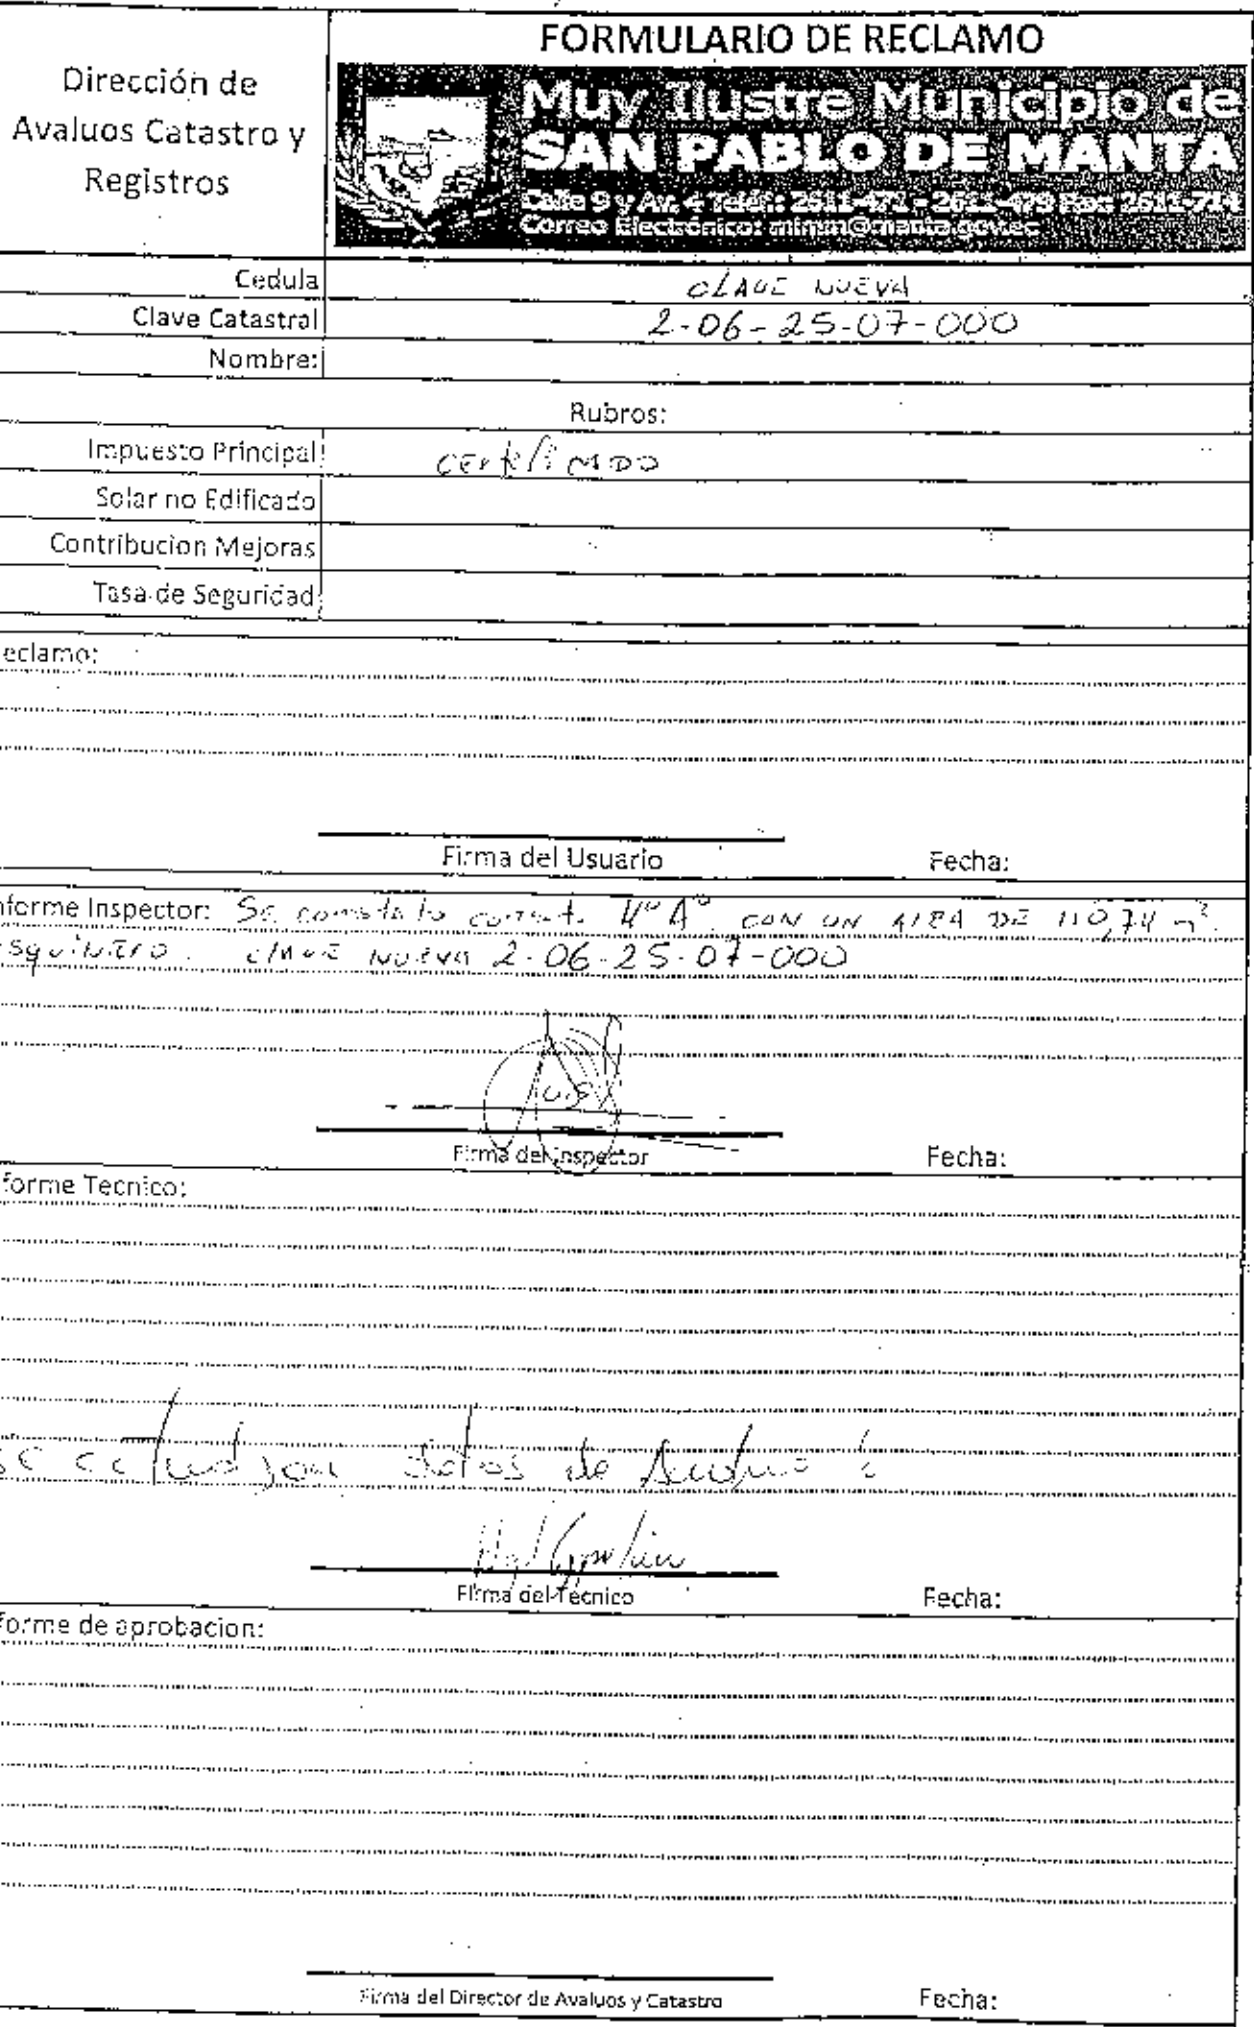 FORMULARIO DE RECLAMO
Dirección de
Avaluos Catastro y
Registros
Muy Ilustre Municipio de
SAN PABLO DE MANTA
Calle 9 y Av. 4 Telef: 2611-471 - 2611-479 Fax: 2611-714
Correo Electrónico: mimm@manta.gov.ec
Cedula CLAVE NUEVA
Clave Catastral 2-06-25-07-000
Nombre:
Rubros:
Impuesto Principal certificado
Solar no Edificado
Contribucion Mejoras
Tasa de Seguridad
eclamo:
Firma del Usuario Fecha:
nforme Inspector: Se constato CON UN AREA DE 110,74 m²
esquinero. clave nueva 2-06-25-07-000
Firma del Inspector Fecha:
forme Tecnico:
se datos de
Firma del Tecnico Fecha:
forme de aprobacion:
Firma del Director de Avaluos y Catastro Fecha: